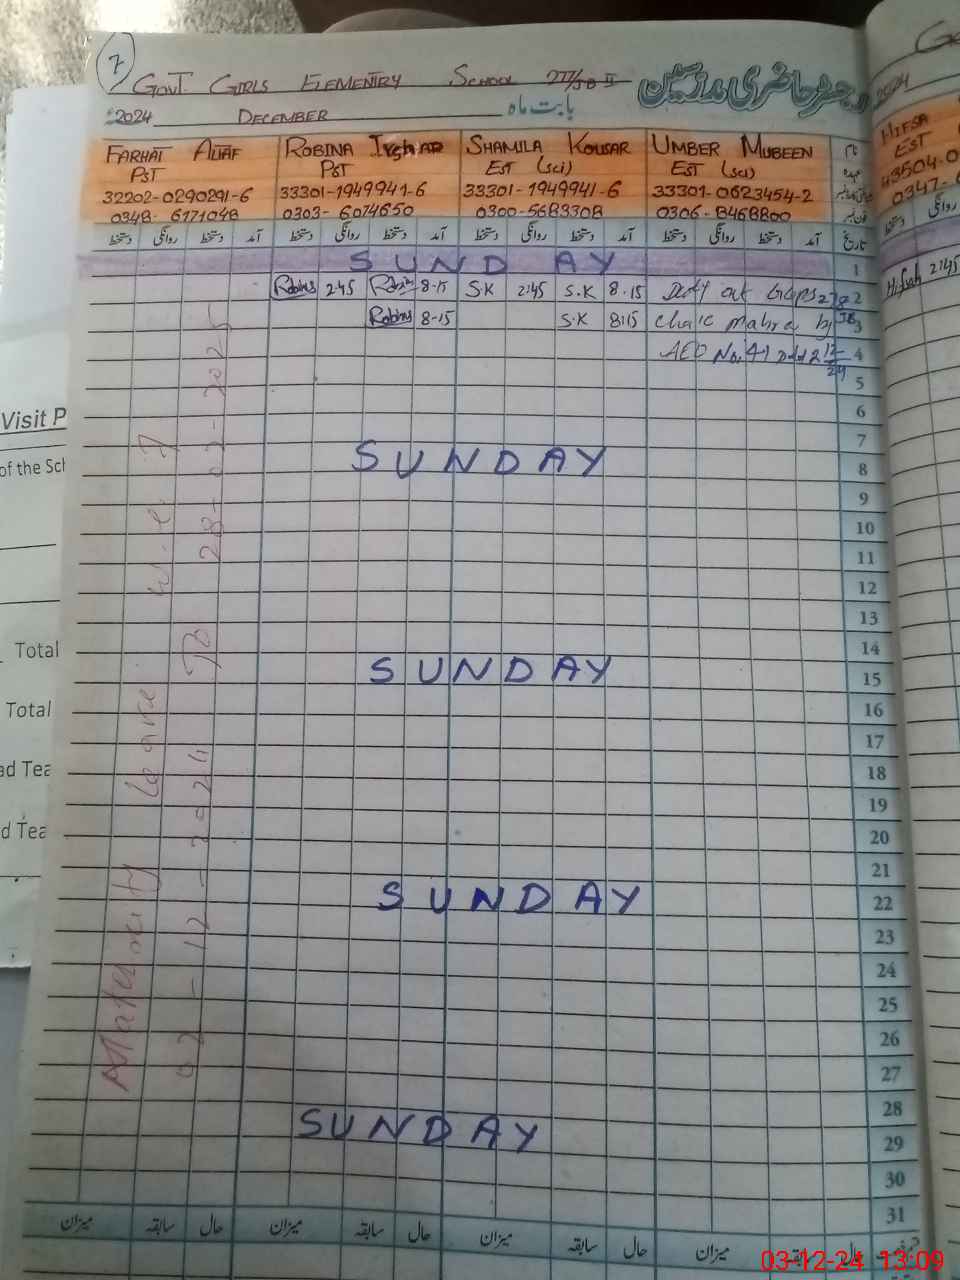 7
GOVT. GIRLS ELEMENTRY SCHOOL
رجسٹر حاضری مدرسین
2024 DECEMBER بابت ماہ
2024
FARHAT ALTAF ROBINA IRSHAD SHAMILA KOUSAR UMBER MUBEEN نام
PST PST EST (sci) EST (sci) عہدہ
32202-0290291-6 33301-1949941-6 33301-1949941-6 33301-0623454-2
0348-6171048 0303-6074650 0300-5683308 0306-8468800
HIFSA
EST
43504-0
0347-6
دستخط روانگی دستخط آمد دستخط روانگی دستخط آمد دستخط روانگی دستخط آمد دستخط روانگی دستخط آمد تاریخ
SUNDAY 1
Robina 2:45 Robina 8-15 S.K 2:45 S.K 8.15 Duty at 2
Robina 8-15 S.K 8:15 by 3
AEO No. 41 4
Hifsah 2:45
5
6
7
SUNDAY 8
9
10
11
12
13
14
SUNDAY 15
16
17
18
19
20
21
SUNDAY 22
23
24
25
26
27
28
SUNDAY 29
30
31
Maternity leave w.e.f
02-12-2024 To 28-02-2025
میزان سابقہ حال میزان سابقہ حال میزان سابقہ حال میزان سابقہ حال
Visit P
of the Sch
Total
Total
ad Tea
d Tea
03-12-24 13:09